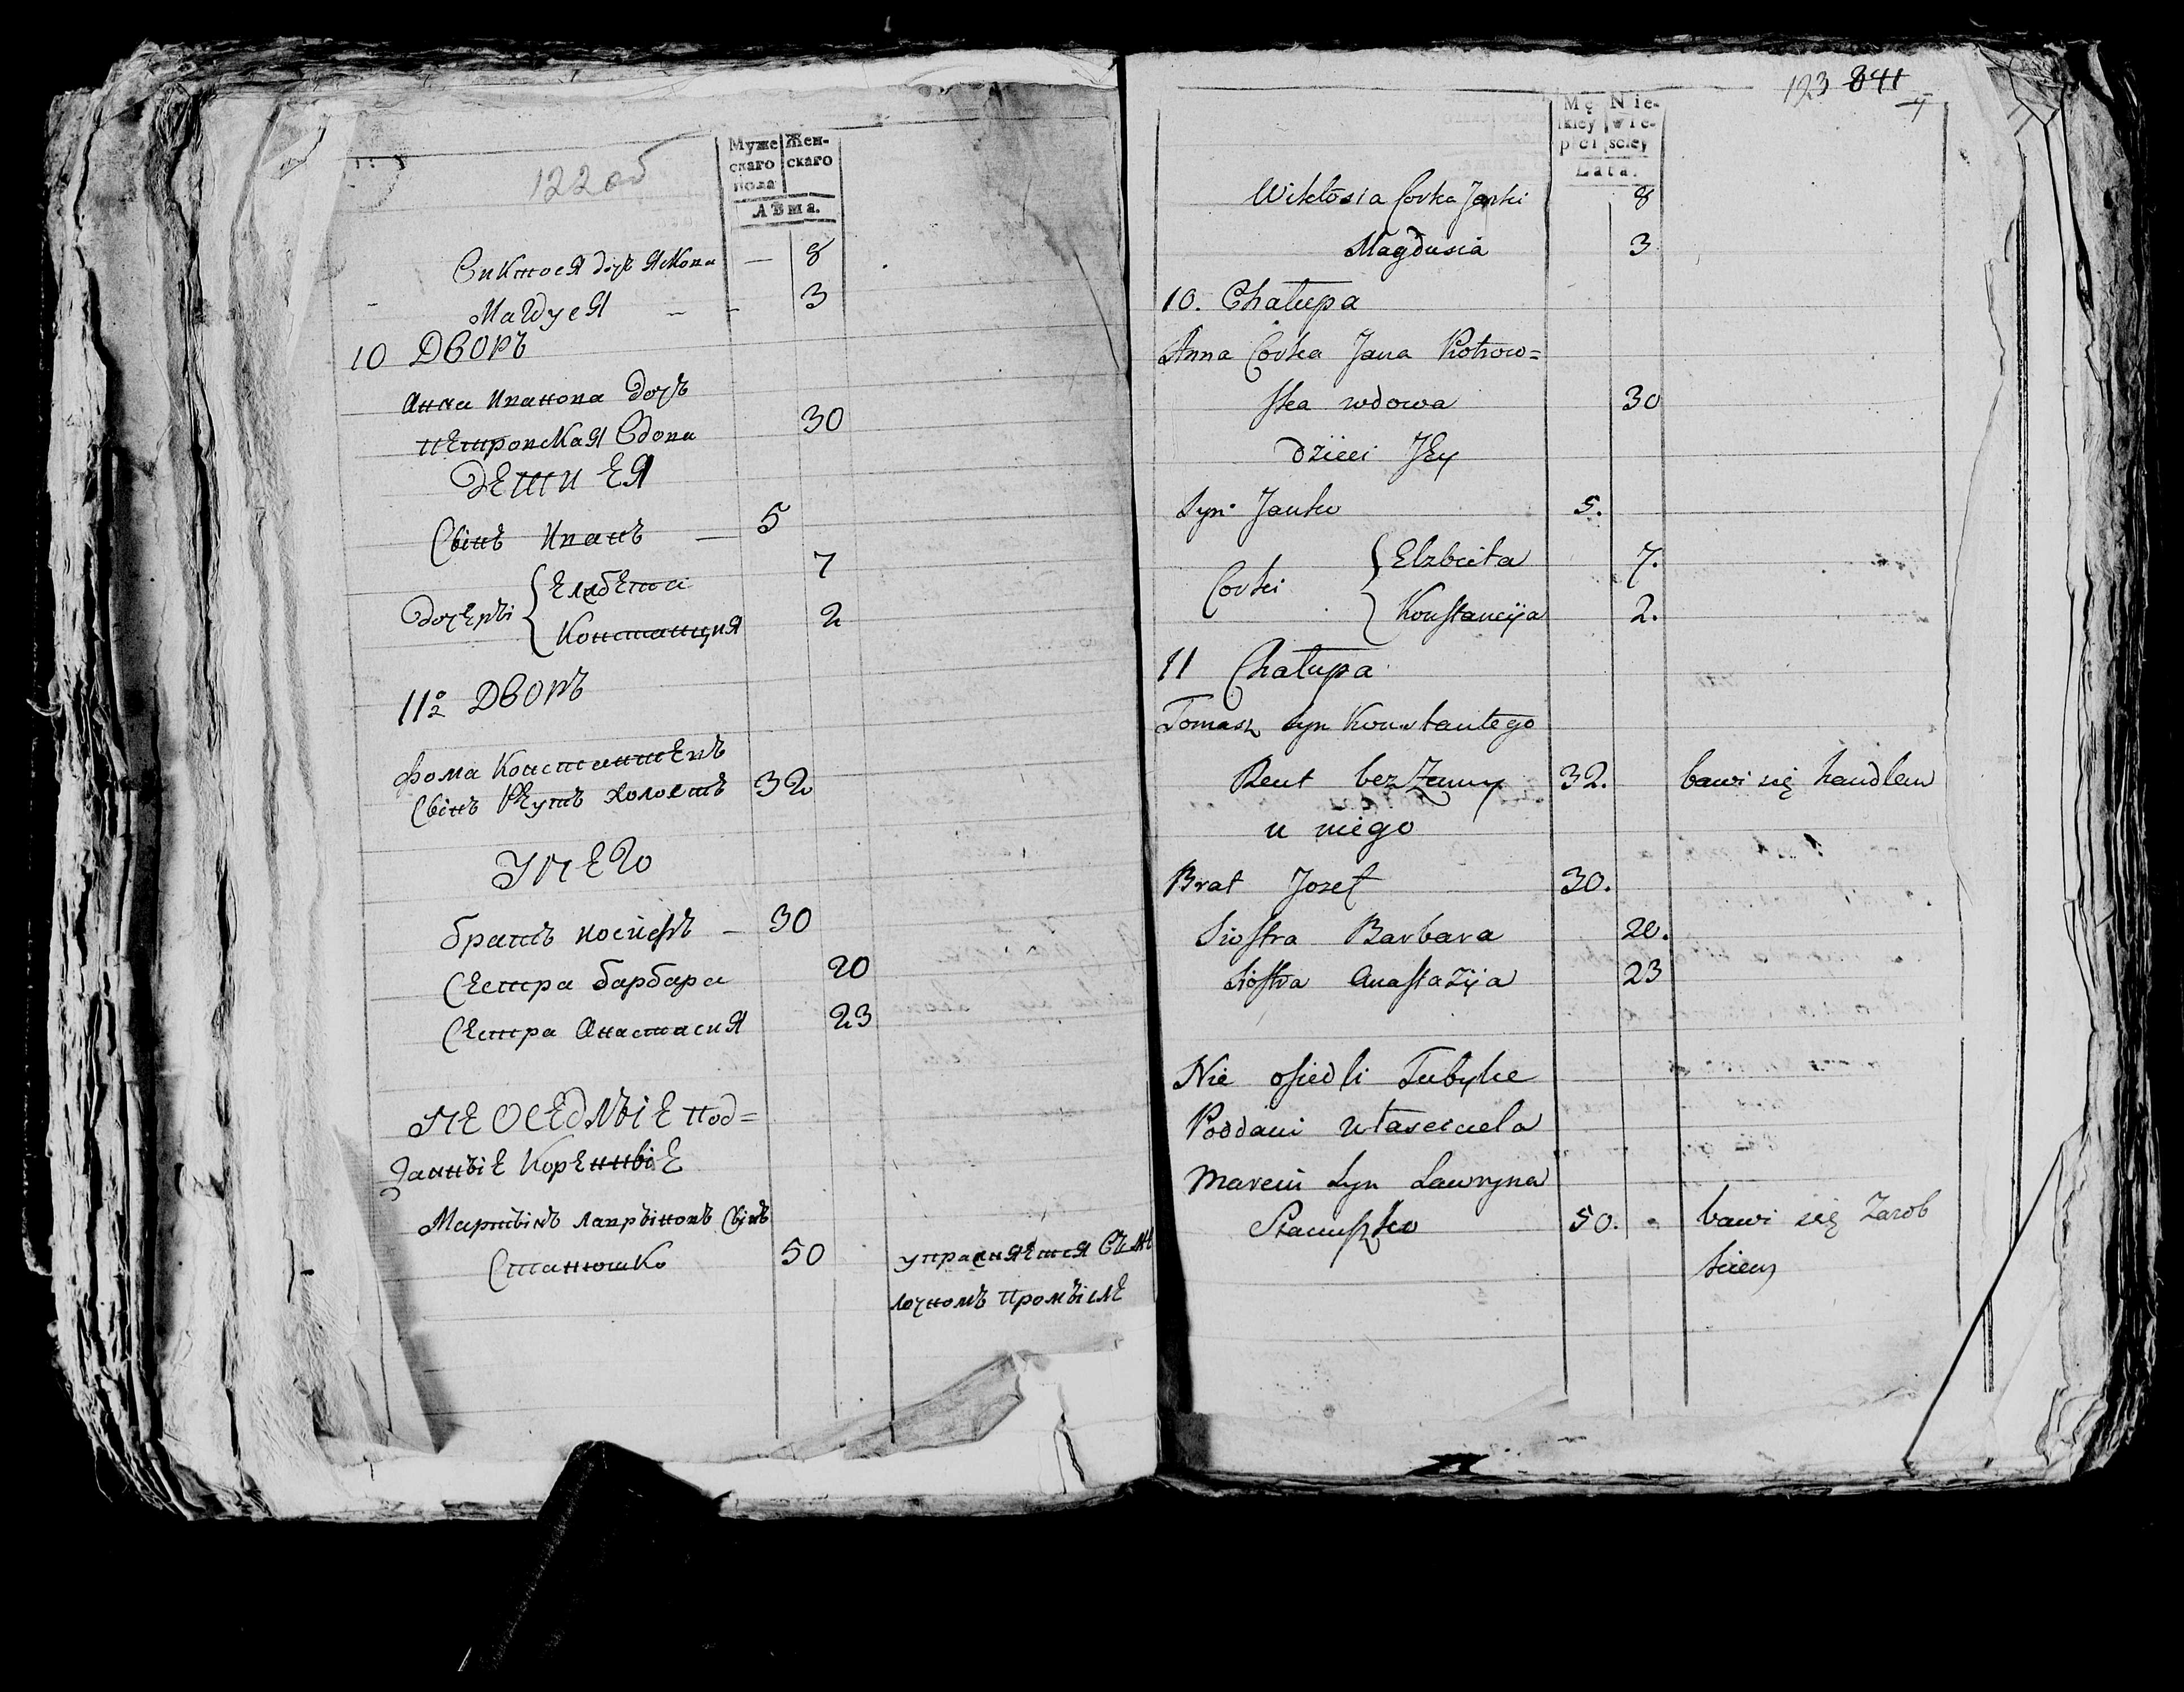 122 об
Муже Жен-
скаго скаго
пола
Лѣта.
Виктося дочь Якова — 8
Магдуся — - 3
10 Дворъ
Анна Иванова дочь
Петровская вдова 30
Дети ея
Сынъ Иванъ — 5
Елзбета 7
Дочери
Констанция 2
11й Дворъ
Фома Константевъ
Сынъ Реутъ холостъ 32
У него
братъ иосифъ – 30
Сестра барбара 20
Сестра Анастасия 23
Не оседлые под=
данные коренные
Мартынъ лаврыновъ Сынъ
Станюшко 50 упражняется въ
лочномъ промысле
123 841
Mę Nie-
skiey wie-
płci sciey
Lata.
Wiktosia Corka Janki 8
Magdusia 3
10. Chałupa
Anna Corka Jana Piotrow=
ska wdowa 30
dzieci Jey
Syn Janko 5.
Elzbieta 7.
Corki
Konstancyja 2.
11 Chałupa
Tomasz syn Konstantego
Reut bez Zenny 32. bawi się handlem
u niego
Brat Jozef 30.
Siostra Barbara 20.
Siostra Anastazija 23
Nie osiedli Tubylce
Poddani własciciela
Marcin Syn Lawryna
Staniuszko 50. bawi się Zarob
kiem